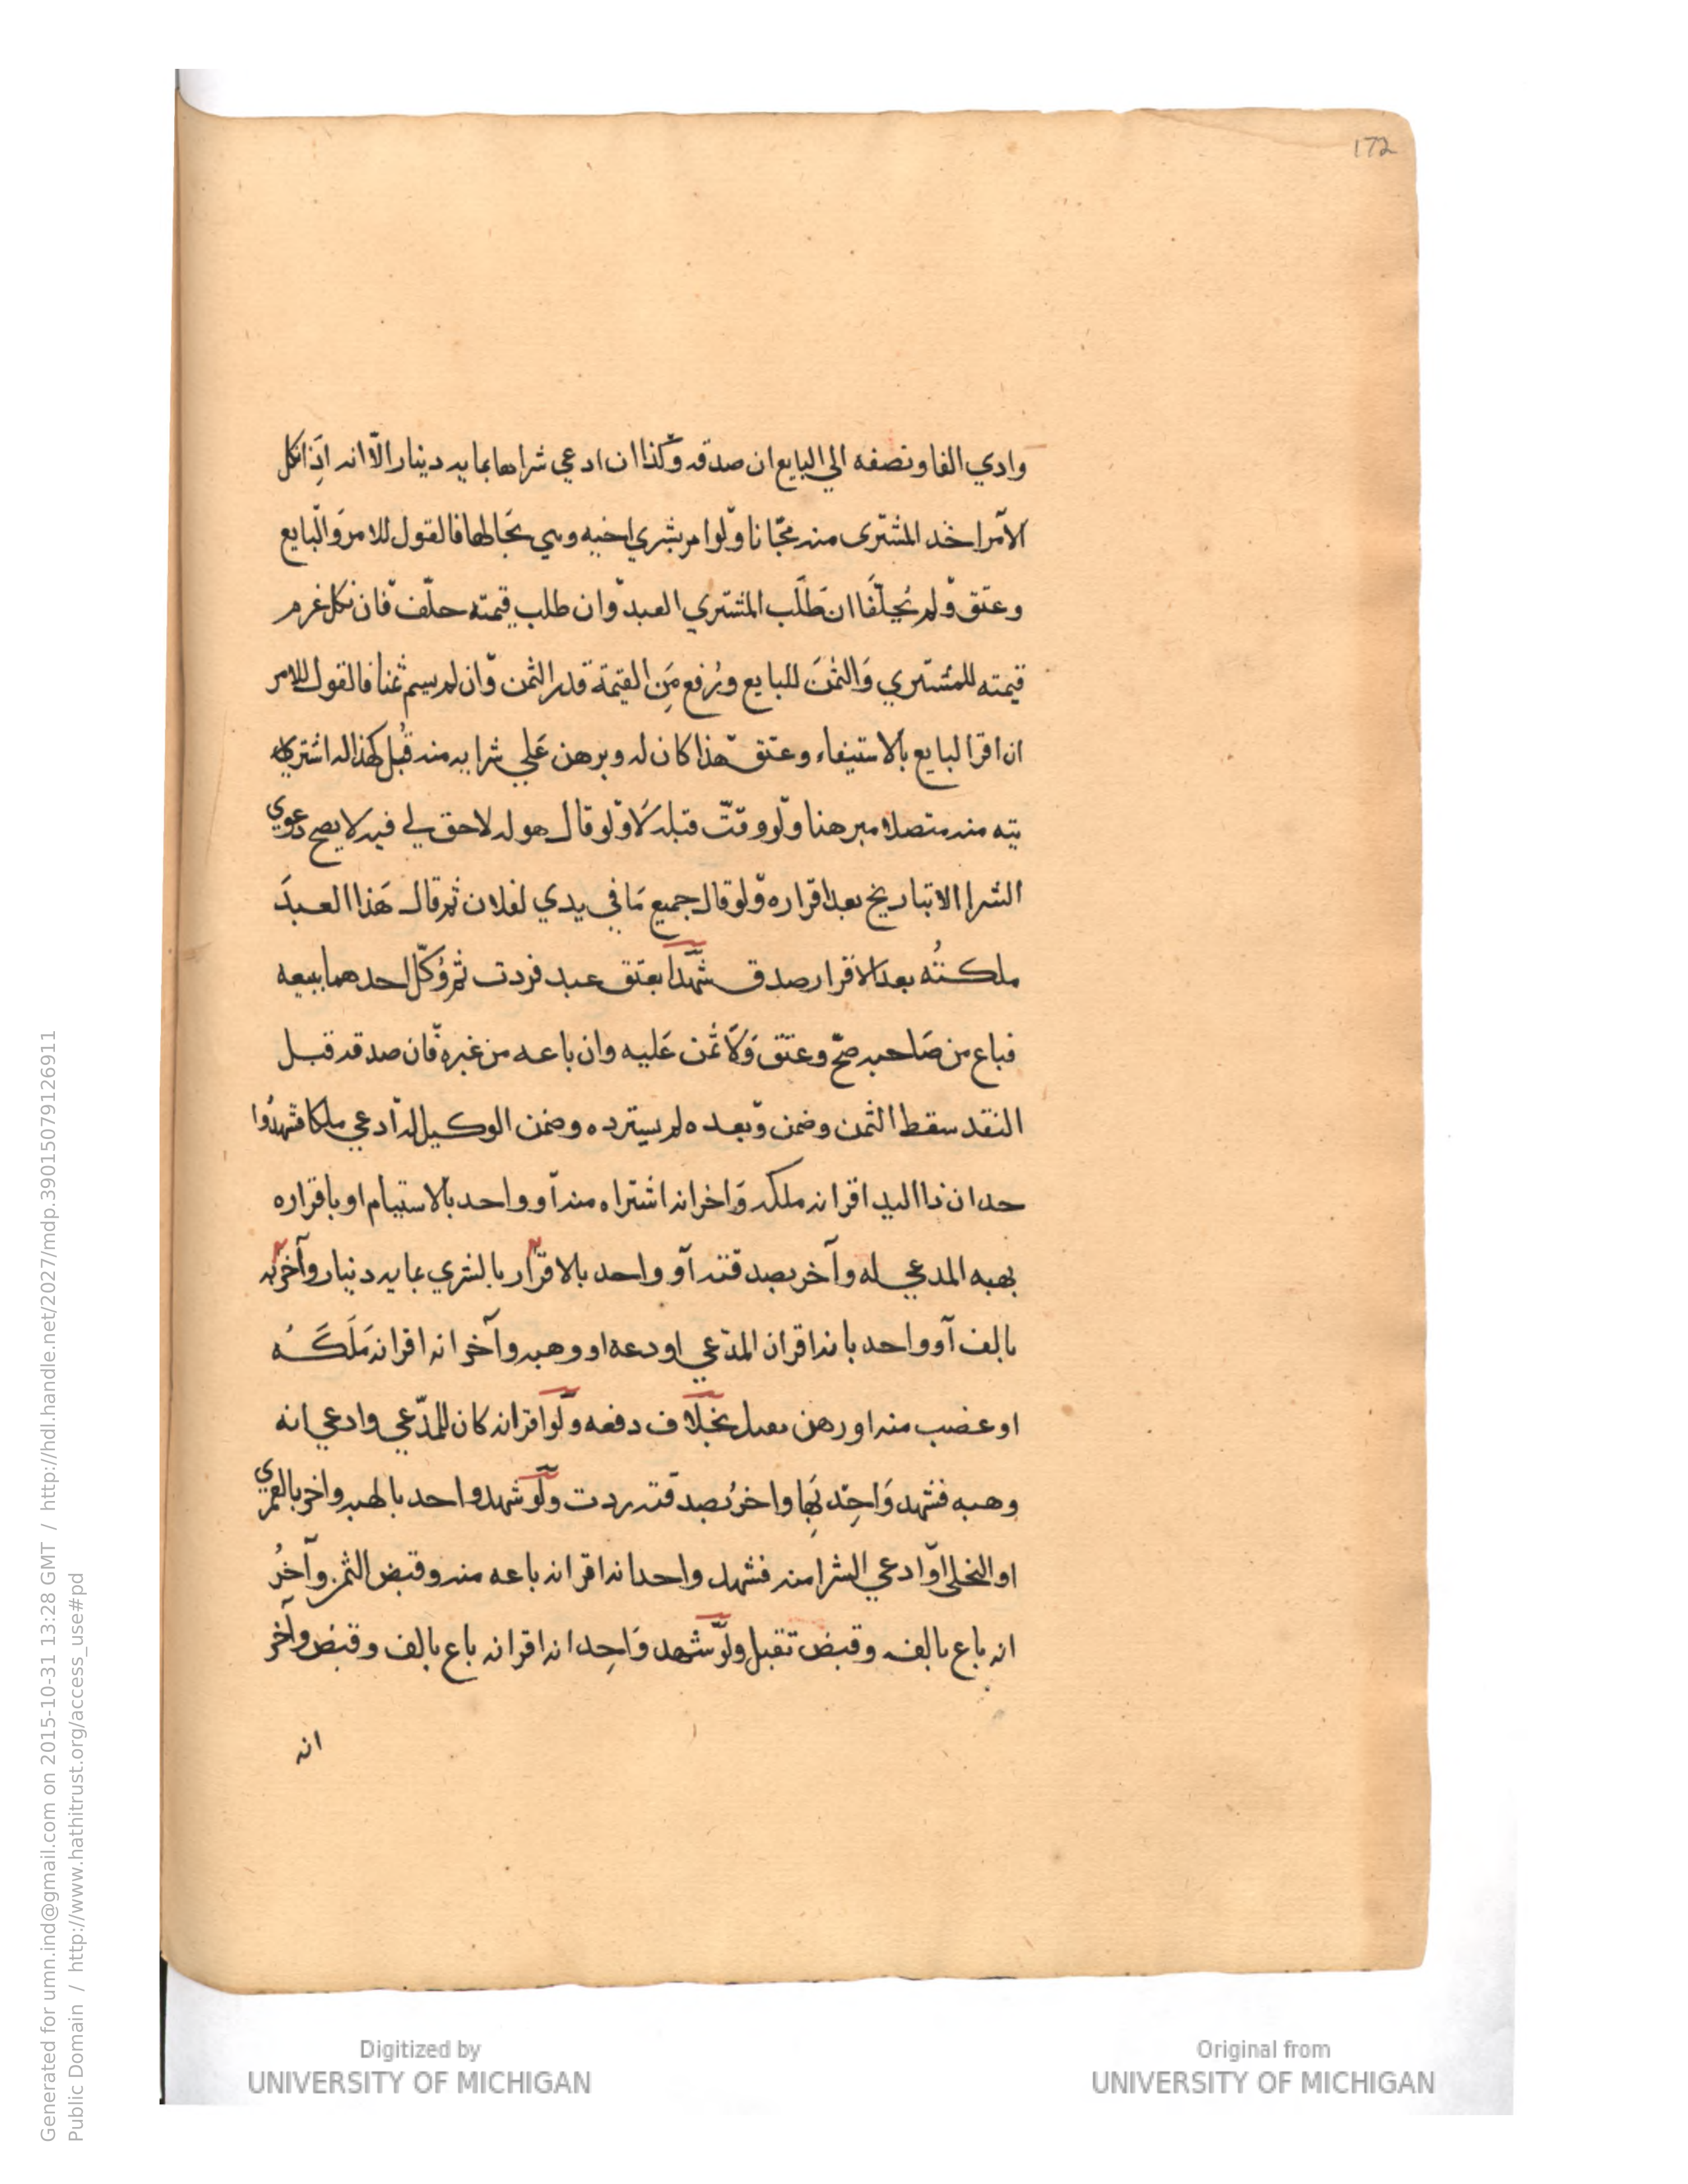 172
وادي الفا ونصفه الي البايع ان صدقه وكذا ان ادعي شراها بمايه دينار الا انه اذا نكل
الآمر اخذ المشترى منه مجانا ولو امر بشري اخيه وهي بحالها فالقول للامر والبايع
وعتق ولم يحلفا ان طلب المشتري العبد وان طلب قيمته حلف فان نكل غرم
قيمته للمشتري والثمن للبايع ورفع من القيمة قدر الثمن وان لم يسم ثمنا فالقول للامر
ان اقر البايع بالاستيفاء وعتق هذا كان له وبرهن علي شرايه منه قبل كهذا له اشتر
يته منه متصلا مبرهنا ولو وقت قبله لا ولو قال هو له لا حق لي فيه لا يصح دعوي
الشرا الا بتاريخ بعد اقراره ولو قال جميع ما في يدي لفلان ثم قال هذا العبد
ملكته بعد الاقرار صدق شهدا بعتق عبد فردت ثم وكل احدهما ببيعه
فباع من صاحبه صح وعتق ولا ثمن عليه وان باعه من غيره فان صدقه قبل
النقد سقط الثمن وضمن وبعده لم يسترده وضمن الوكيل له ادعي ملكا فشهدوا
حد ان ذا اليد اقر انه ملكه واخر انه اشتراه منه او واحد بالاستيام او باقراره
بهبه المدعي له وآخر بصدقته او واحد بالاقرار بالشري بمايه دينار وآخر به
بالف او واحد بانه اقر ان المدعي اودعه او وهبه وآخر انه اقر انه ملكه
او غصب منه او رهن بخلاف دفعه ولو اقر انه كان للمدعي وادعي انه
وهبه فشهد واحد بها واخر بصدقته ردت ولو شهد واحد بالهبه واخر بالعمري
او النحلي او ادعي الشرا منه فشهد واحد انه اقر انه باعه منه وقبض الثمن وآخر
انه باع بالف وقبض تقبل ولو شهد واحد انه اقر انه باع بالف وقبض وآخر
انه
Generated for umn.ind@gmail.com on 2015-10-31 13:28 GMT / http://hdl.handle.net/2027/mdp.39015079126911
Public Domain / http://www.hathitrust.org/access_use#pd
Digitized by
UNIVERSITY OF MICHIGAN
Original from
UNIVERSITY OF MICHIGAN